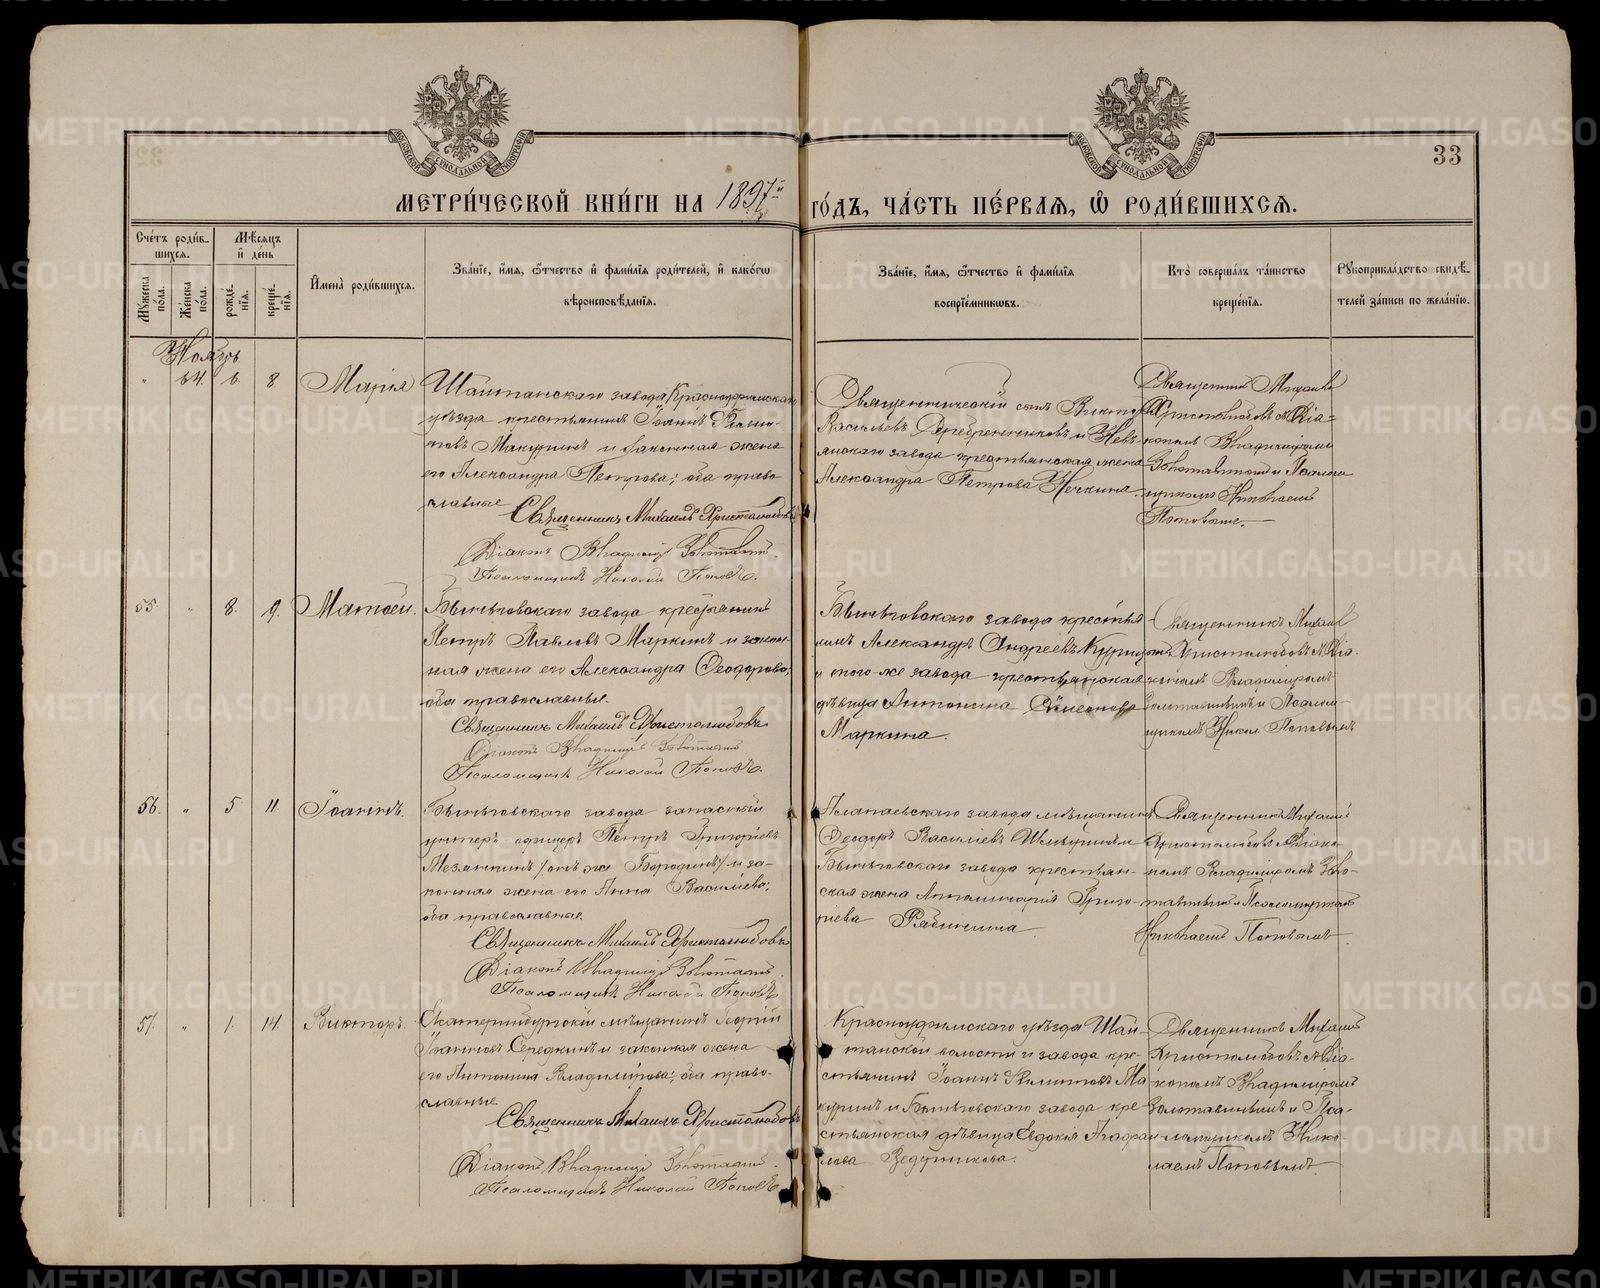 33
МЕТРИ́ЧЕСКОЙ КНИ́ГИ НА 1897й ГО́ДЪ, ЧА́СТЬ ПЕ́РВАЯ, Ѡ РОДИ́ВШИХСЯ.
Сче́тъ роди́в-
шихся.
Мѣ́сяцъ
и҆ де́нь
Му́жеска
по́ла.
Же́нска
по́ла.
рожде́-
нїя.
креще́-
нїя.
И҆мена̀ роди́вшихся.
Зва́нїе, и҆́мя, ѻ҆́тчество и҆ фами́лїя роди́телей, и҆ како́гѡ
вѣроисповѣ́данїя.
Зва́нїе, и҆́мя, ѻ҆́тчество и҆ фами́лїя
воспрїе́мниковъ.
Кто̀ соверша́лъ та́инство
креще́нїя.
Рукоприкла́дство свидѣ́-
телей за́писи по жела́нїю.
Ноябрь
" 64. 6. 8. Марія
Шайтанскаго завода Красноуфимскаго
уѣзда крестьянинъ Іоаннъ
Макуринъ и законная жена
его Александра Петрова; оба право-
славные
Священникъ Михаилъ Христолюбовъ
Діаконъ Владиміръ Золотавинъ.
Псаломщикъ Николай Поповъ.
Священническій сынъ Викторъ
Васильевъ Серебренниковъ и Невь-
янскаго завода крестьянская жена
Александра Петрова Нечкина.
Священникъ Михаилъ
Христолюбовъ съ діа-
кономъ Владиміромъ
Золотавинымъ и Псалом-
щикомъ Николаемъ
Поповымъ.
55. " 8. 9. Матѳей.
Быньговскаго завода крестьянинъ
Петръ Павловъ Маркинъ и закон-
ная жена его Александра Ѳеодорова;
оба православные.
Священникъ Михаилъ Христолюбовъ
Діаконъ Владиміръ Золотавинъ
Псаломщикъ Николай Поповъ.
Быньговскаго завода крестья-
нинъ Александръ Андреевъ
и того-же завода крестьянская
дѣвица Антонина Симеонова
Маркина.
Священникъ Михаилъ
Христолюбовъ съ діа-
кономъ Владиміромъ
Золотавинымъ и Псалом-
щикомъ Никол. Поповымъ
56. " 5 11. Іоаннъ.
Быньговскаго завода запасный
унтеръ-офицеръ Петръ Григорьевъ
Мезенинъ /онъ же Бородинъ/ и за-
конная жена его Анна Василіева;
оба православные.
Священникъ Михаилъ Христолюбовъ
Діаконъ Владиміръ Золотавинъ.
Псаломщикъ Николай Поповъ
Алапаевскаго завода мѣщанинъ
Ѳеодоръ Василіевъ и
Быньговскаго завода крестьян-
ская жена Аполлинарія Григо-
ріева Рябинина
Священникъ Михаилъ
Христолюбовъ съ діако-
номъ Владиміромъ Золо-
тавинымъ и Псаломщикомъ
Николаемъ Поповымъ.
57. " 1. 14. Викторъ.
Екатеринбургскій мѣщанинъ Георгій
Іоанновъ Середкинъ и законная жена
его Антонина Владимірова; оба право-
славные.
Священникъ Михаилъ Христолюбовъ
Діаконъ Владиміръ Золотавинъ.
Псаломщикъ Николай Поповъ
Красноуфимскаго уѣзда Шай-
танской волости и завода кре-
стьянинъ Іоаннъ Ма-
куринъ и Быньговскаго завода кре-
стьянская дѣвица Евдокія Агафан-
гелова Ведерникова.
Священникъ Михаилъ
Христолюбовъ съ діа-
кономъ Владиміромъ
Золотавинымъ и Пса-
ломщикомъ Нико-
лаемъ Поповымъ
METRIKI.GASO-URAL.RU